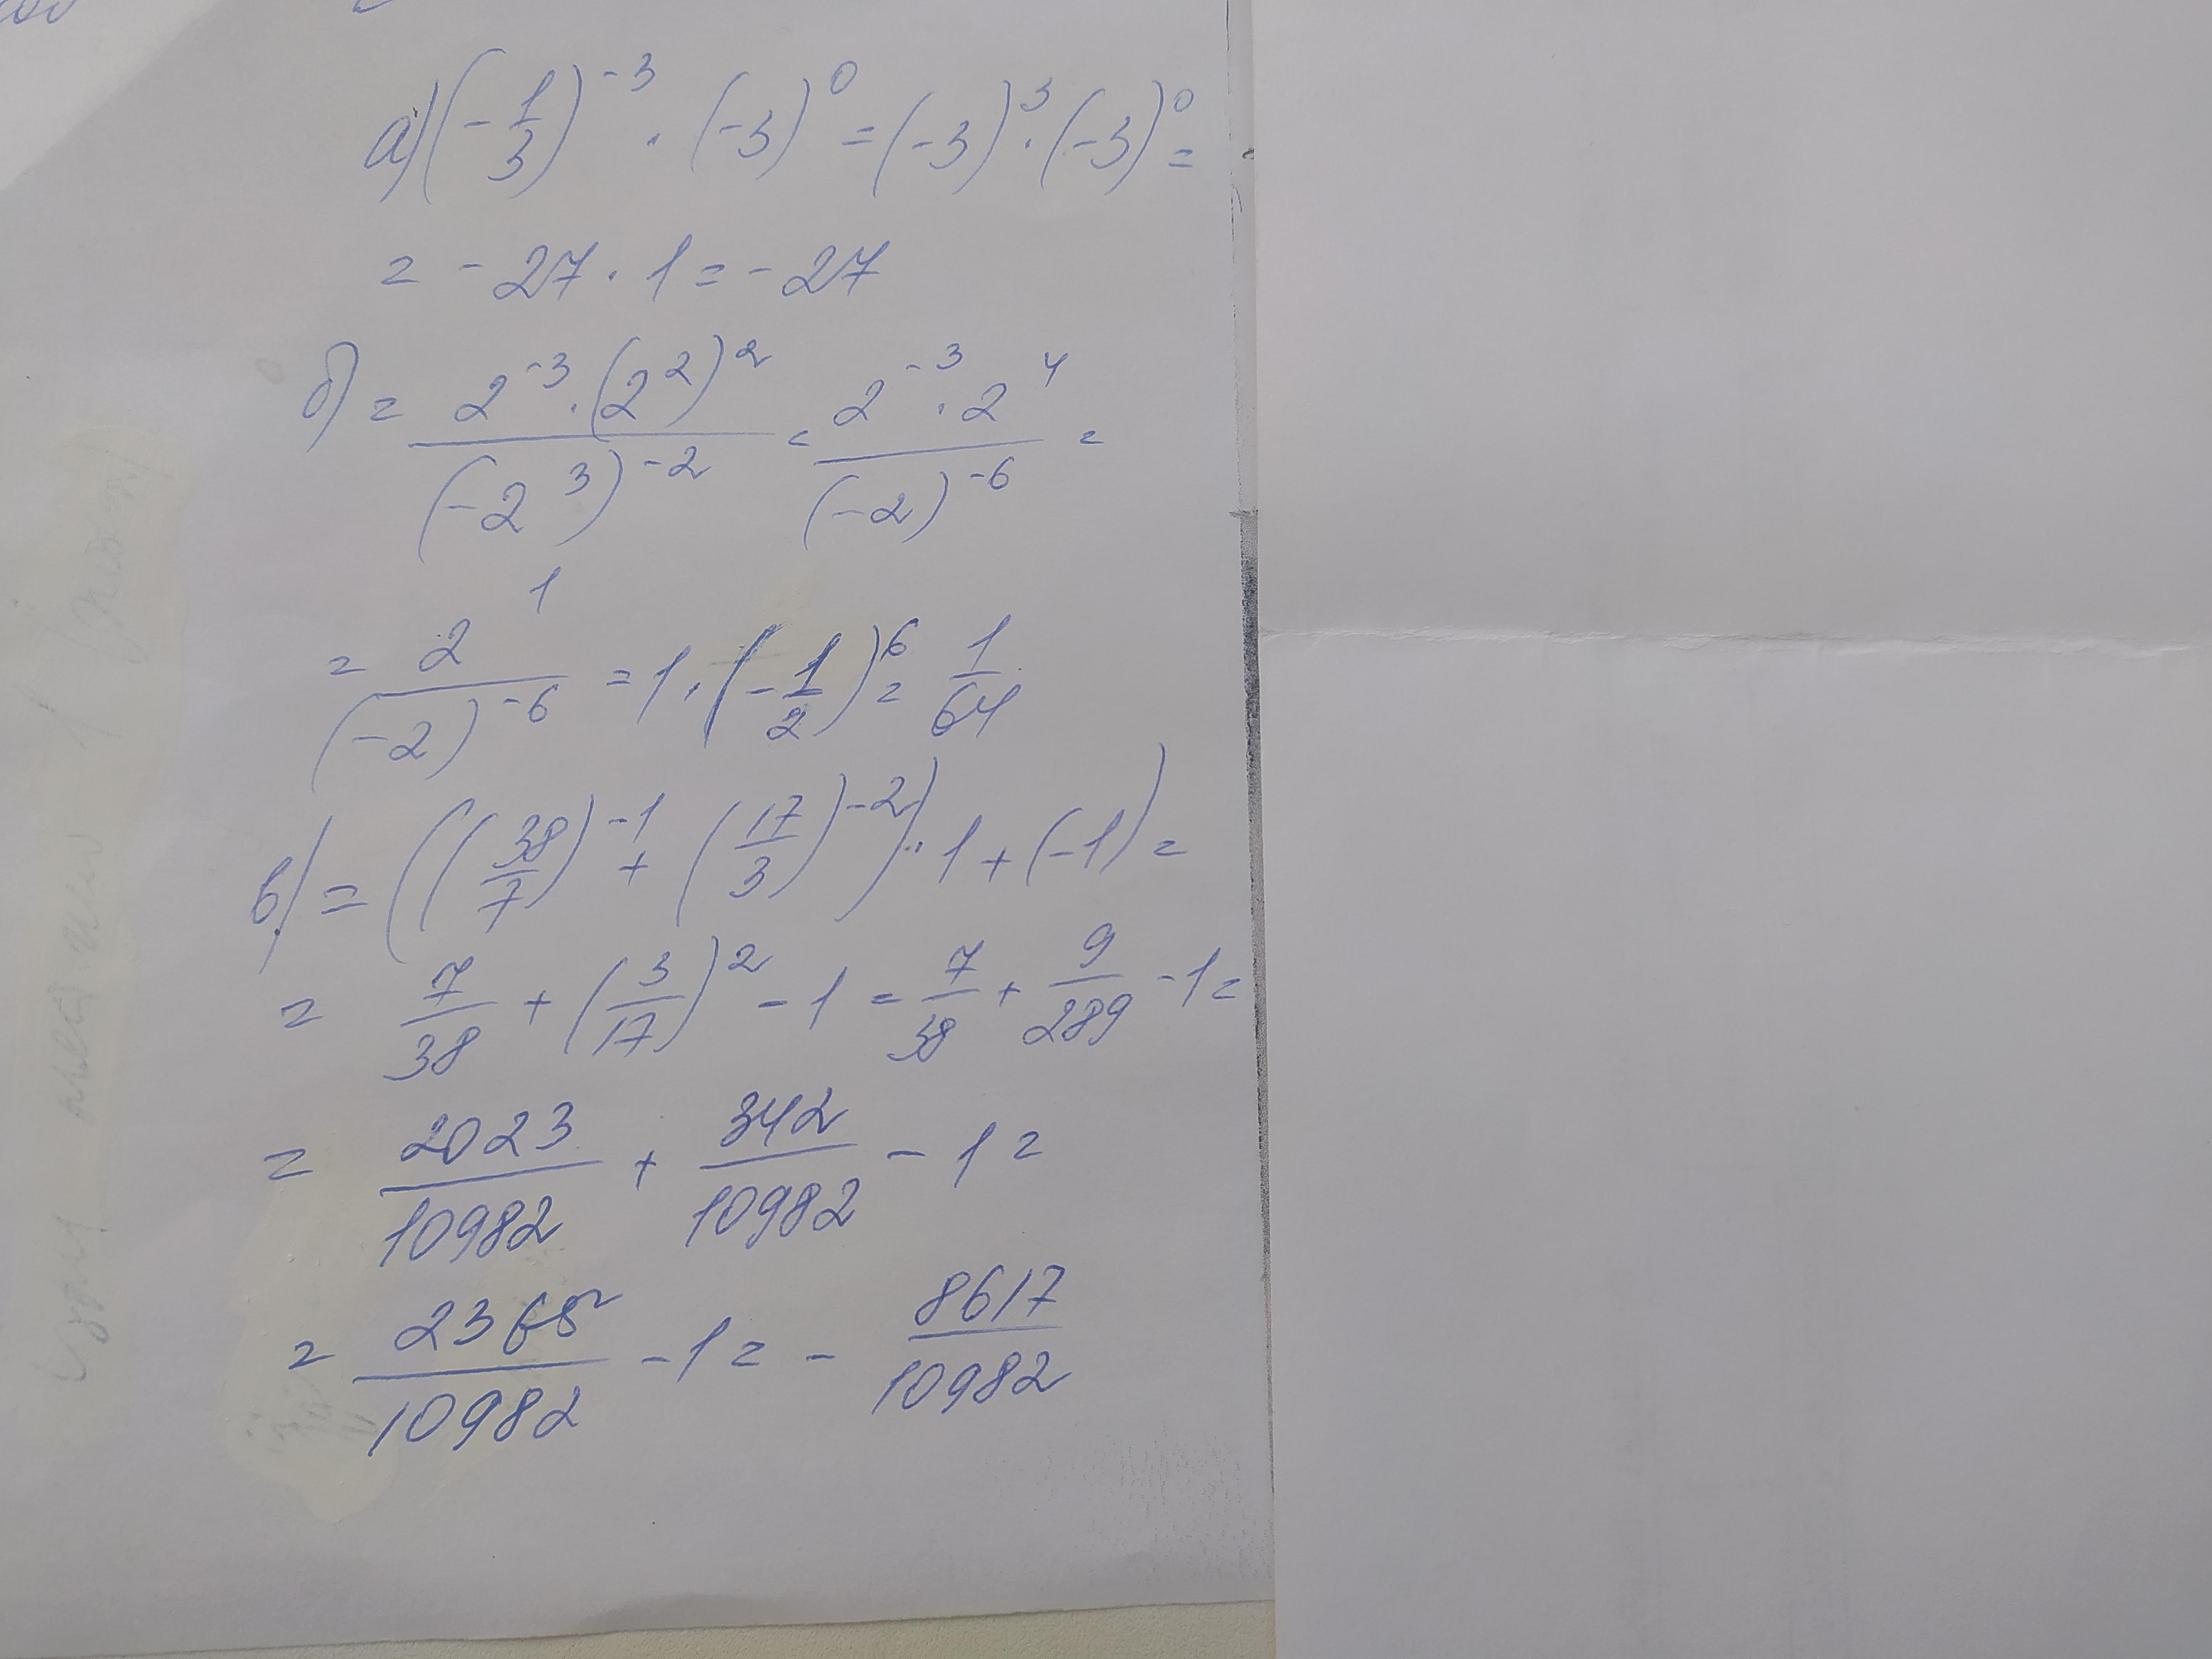 а) (-1/3)^-3 · (-3)^0 = (-3)^3 · (-3)^0 =
= -27 · 1 = -27
б) = 2^-3 · (2^2)^2 / (-2^3)^-2 = 2^-3 · 2^4 / (-2)^-6 =
= 2^1 / (-2)^-6 = 1 · (-1/2)^6 = 1/64
в) = ((38/7)^-1 + (17/3)^-2) · 1 + (-1) =
= 7/38 + (3/17)^2 - 1 = 7/38 + 9/289 - 1 =
= 2023/10982 + 342/10982 - 1 =
= 2365/10982 - 1 = - 8617/10982